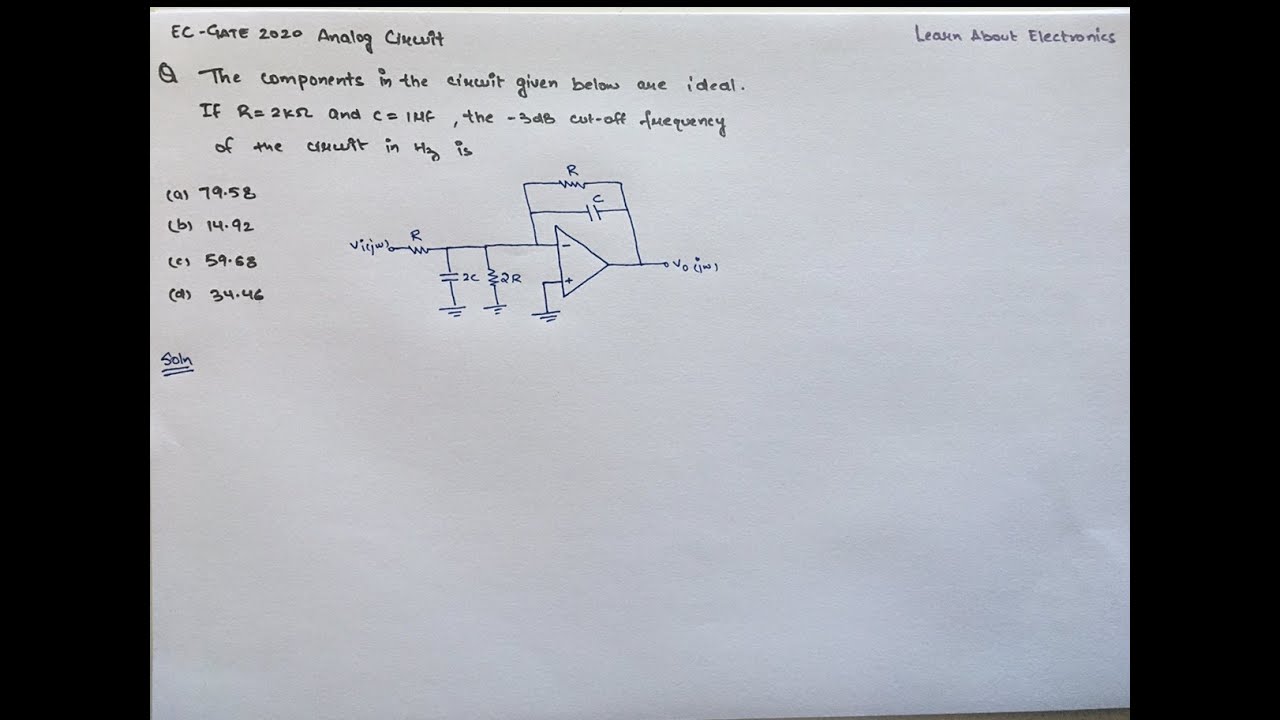 EC-GATE 2020 Analog Circuit
Learn About Electronics
Q The components in the circuit given below are ideal.
If R = 2KΩ and C = 1μF, the -3dB cut-off frequency
of the circuit in Hz is
(a) 79.58
(b) 14.92
(c) 59.68
(d) 34.46
R
C
Vi(jω)
R
2C
2R
-
+
Vo(jω)
Soln